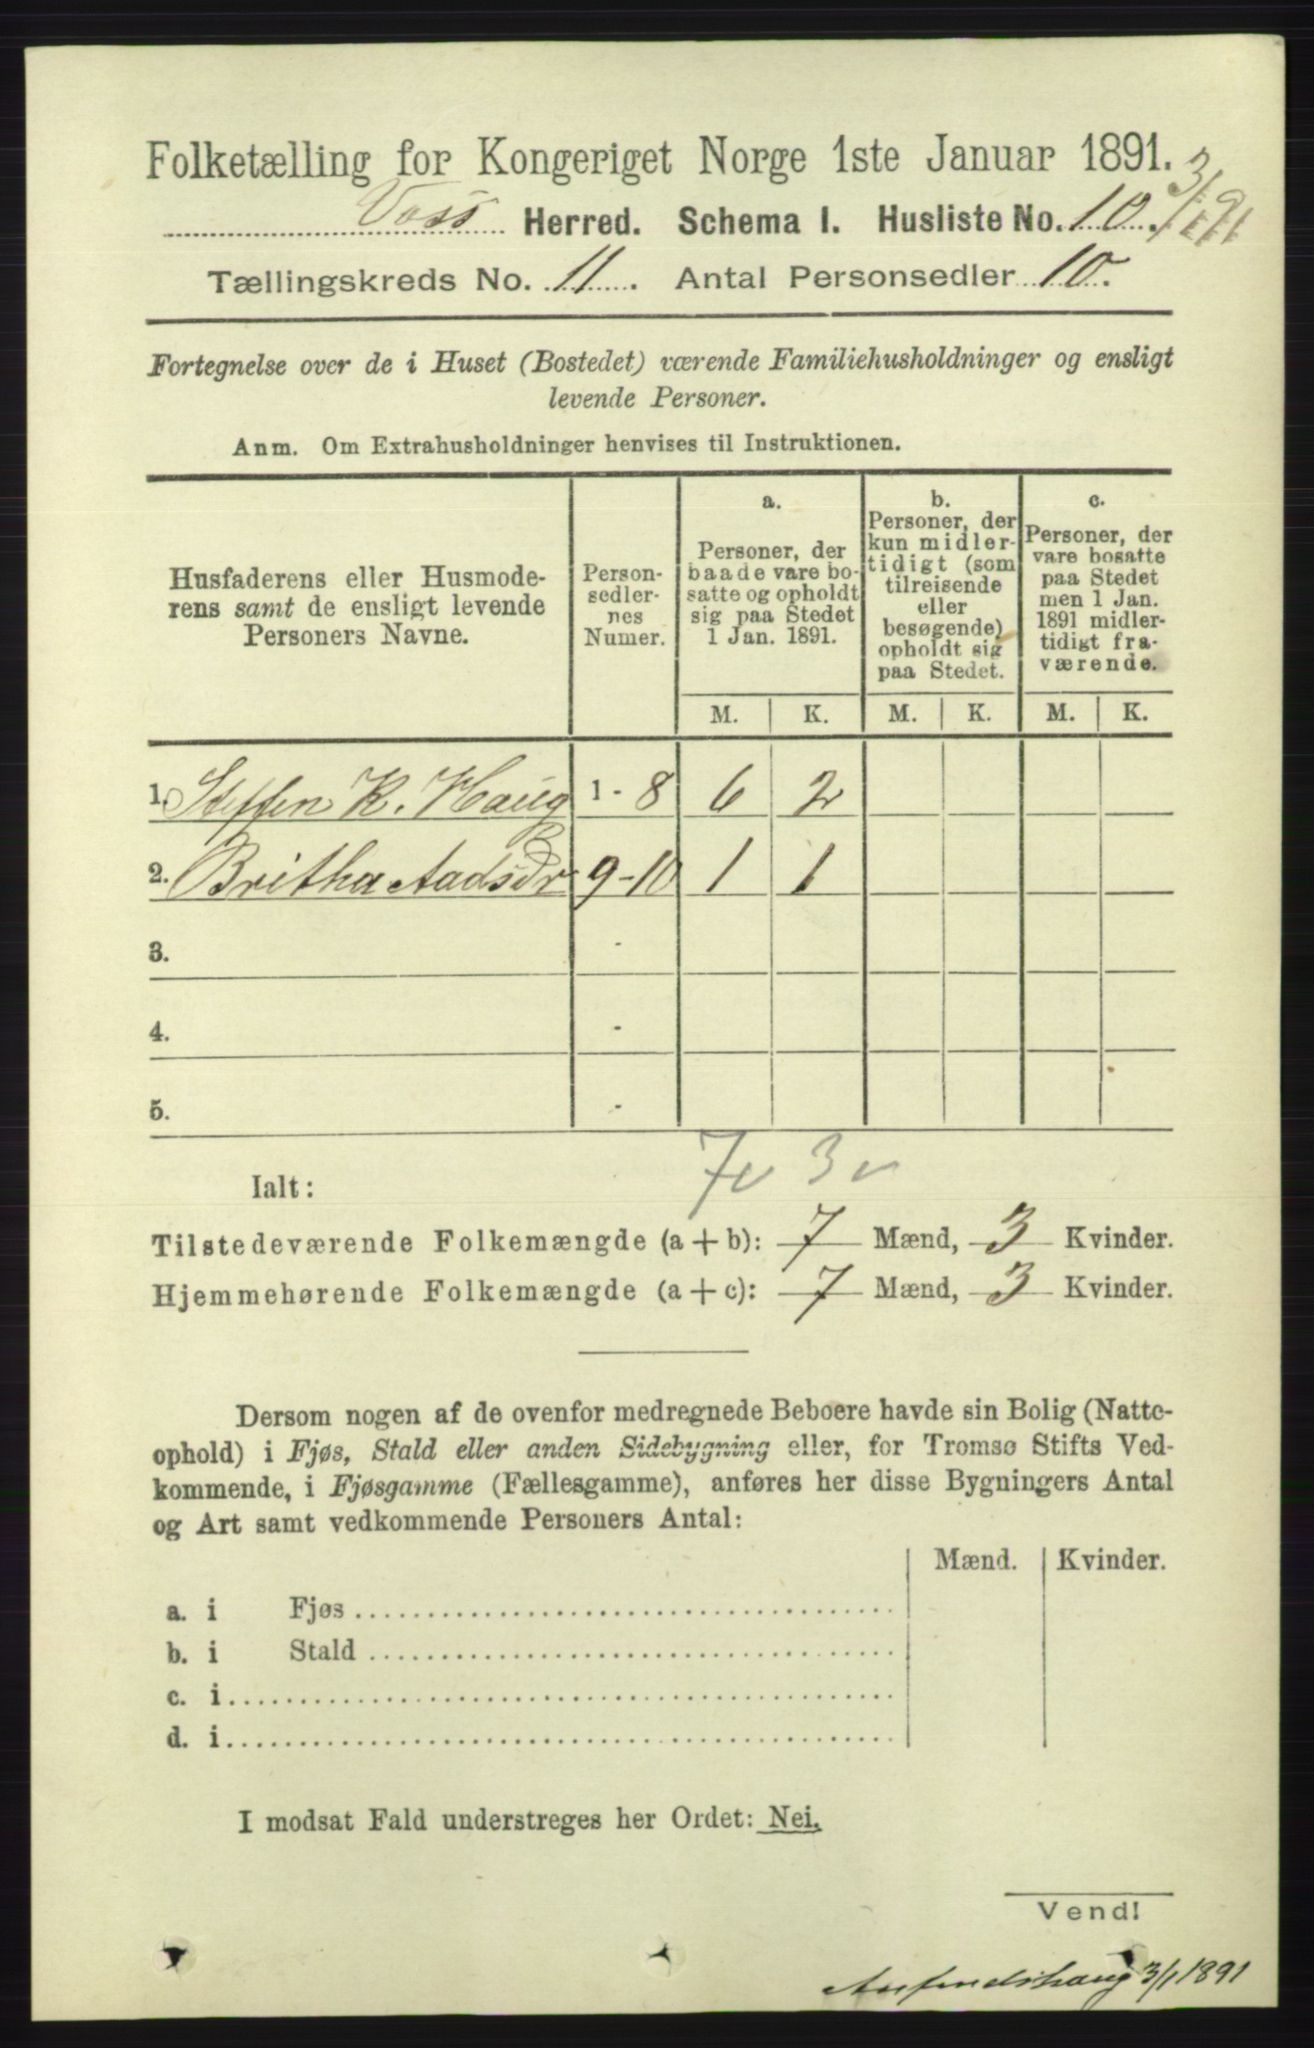 Folketælling for Kongeriget Norge 1ste Januar 1891.
Voss Herred. Schema I. Husliste No. 10. 3/1 91
Tællingskreds No. 11. Antal Personsedler 10.
Fortegnelse over de i Huset (Bostedet) værende Familiehusholdninger og ensligt
levende Personer.
Anm. Om Extrahusholdninger henvises til Instruktionen.
Husfaderens eller Husmode-
rens samt de ensligt levende
Personers Navne.
Person-
sedler-
nes
Numer.
a.
Personer, der
baade vare bo-
satte og opholdt
sig paa Stedet
1 Jan. 1891.
b.
Personer, der
kun midler-
tidigt (som
tilreisende
eller
besøgende)
opholdt sig
paa Stedet.
c.
Personer, der
vare bosatte
paa Stedet
men 1 Jan.
1891 midler-
tidigt fra-
værende.
M. K. M. K. M. K.
1. Steffen K. Haug 1 - 8 6 2
2. Britha Aadsdr 9 - 10 1 1
3. -
4. -
5. -
7 3
Ialt:
Tilstedeværende Folkemængde (a + b): 7 Mænd, 3 Kvinder.
Hjemmehørende Folkemængde (a + c): 7 Mænd, 3 Kvinder.
Dersom nogen af de ovenfor medregnede Beboere havde sin Bolig (Natte-
ophold) i Fjøs, Stald eller anden Sidebygning eller, for Tromsø Stifts Ved-
kommende, i Fjøsgamme (Fællesgamme), anføres her disse Bygningers Antal
og Art samt vedkommende Personers Antal:
Mænd. Kvinder.
a. i Fjøs
b. i Stald
c. i
d. i
I modsat Fald understreges her Ordet: Nei.
Vend!
3/1 1891